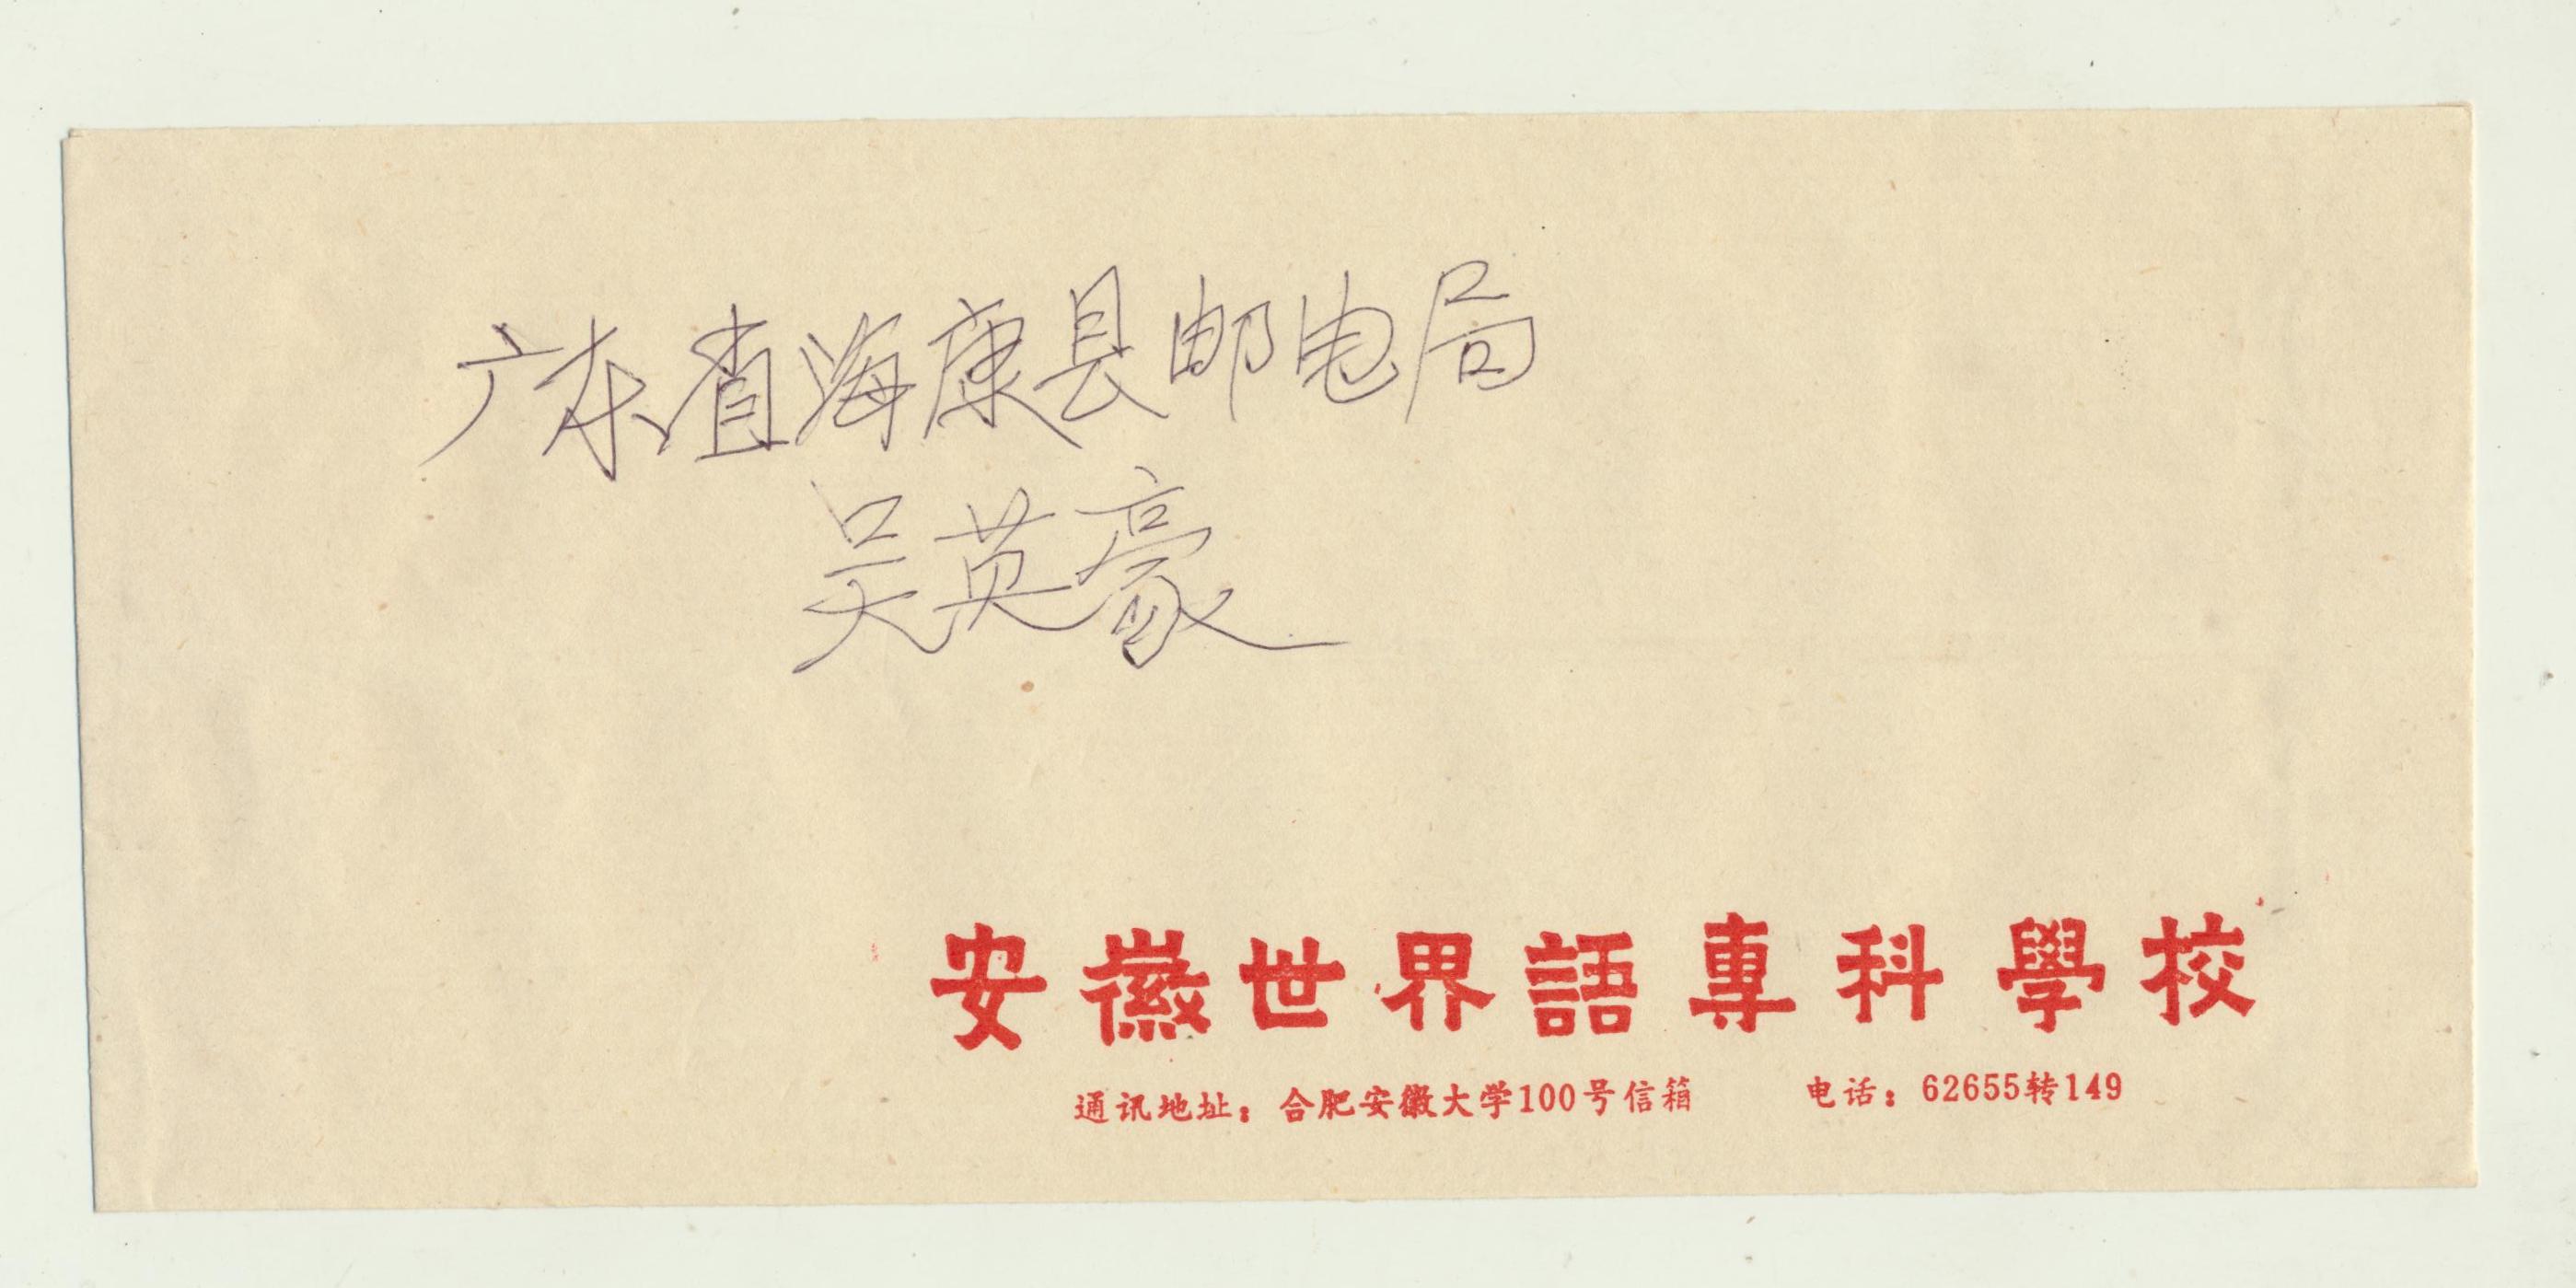 广东省海康县邮电局
吴英豪
安徽世界語專科學校
通讯地址：合肥安徽大学100号信箱 电话：62655转149